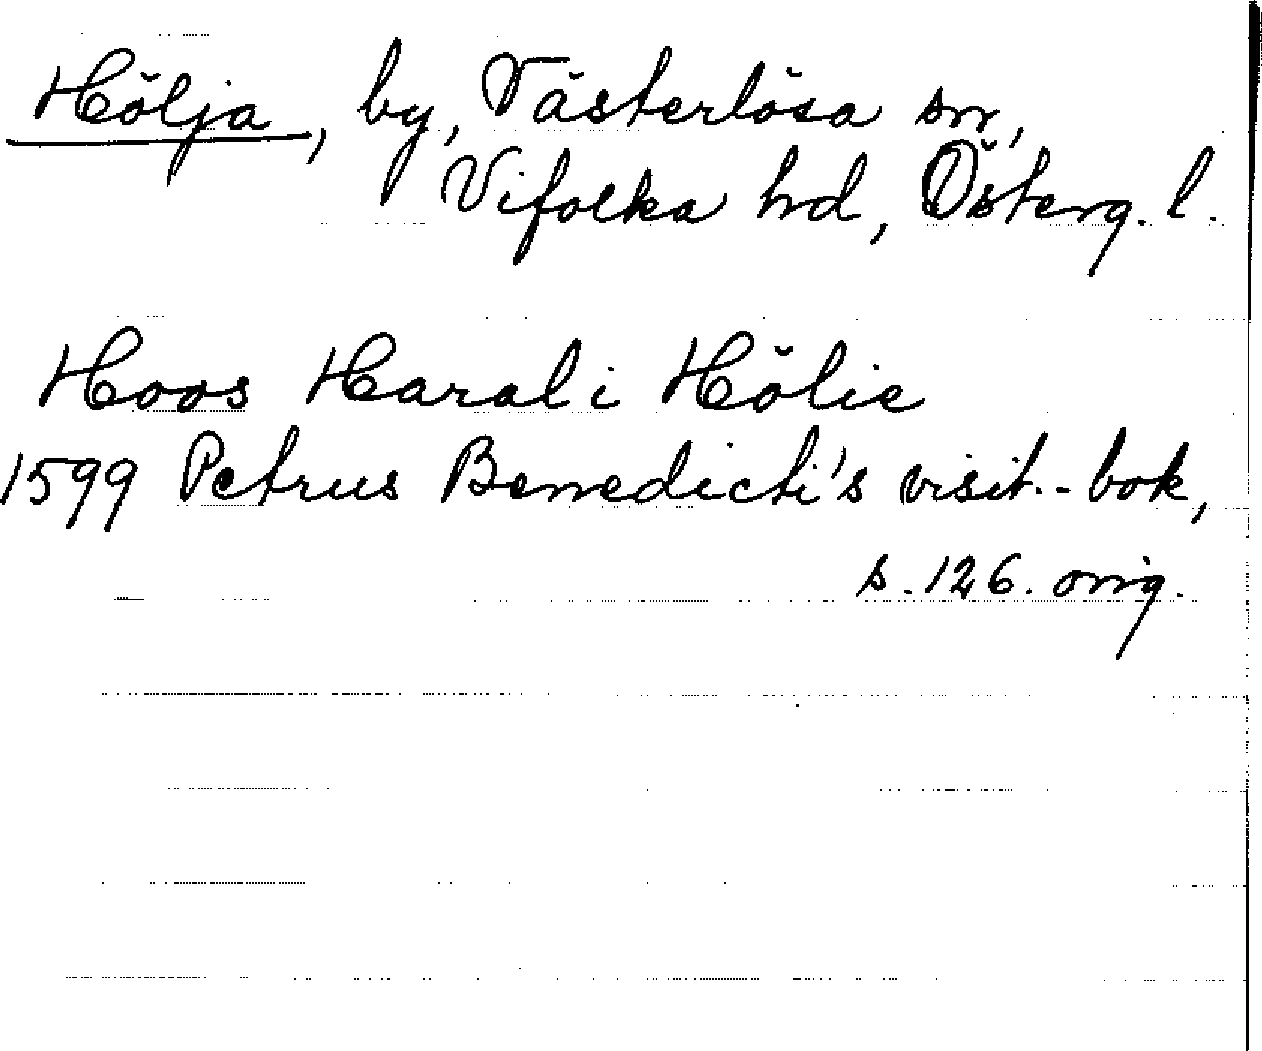 Hölja, by, Västerlösa sn,
Vifolka hd, Österg. l.
Hoos Haral i Hölie
1599 Petrus Benedicti's visit.-bok,
s. 126. orig.